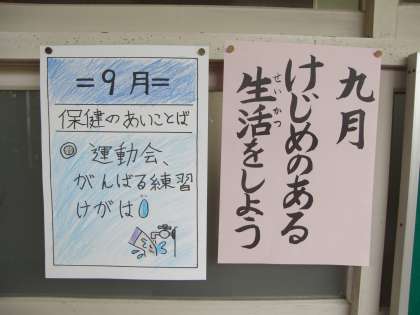 =9月=
保健のあいことば
運動会、
がんばる練習
けがは
九月
けじめのある
生活をしよう
せいかつ